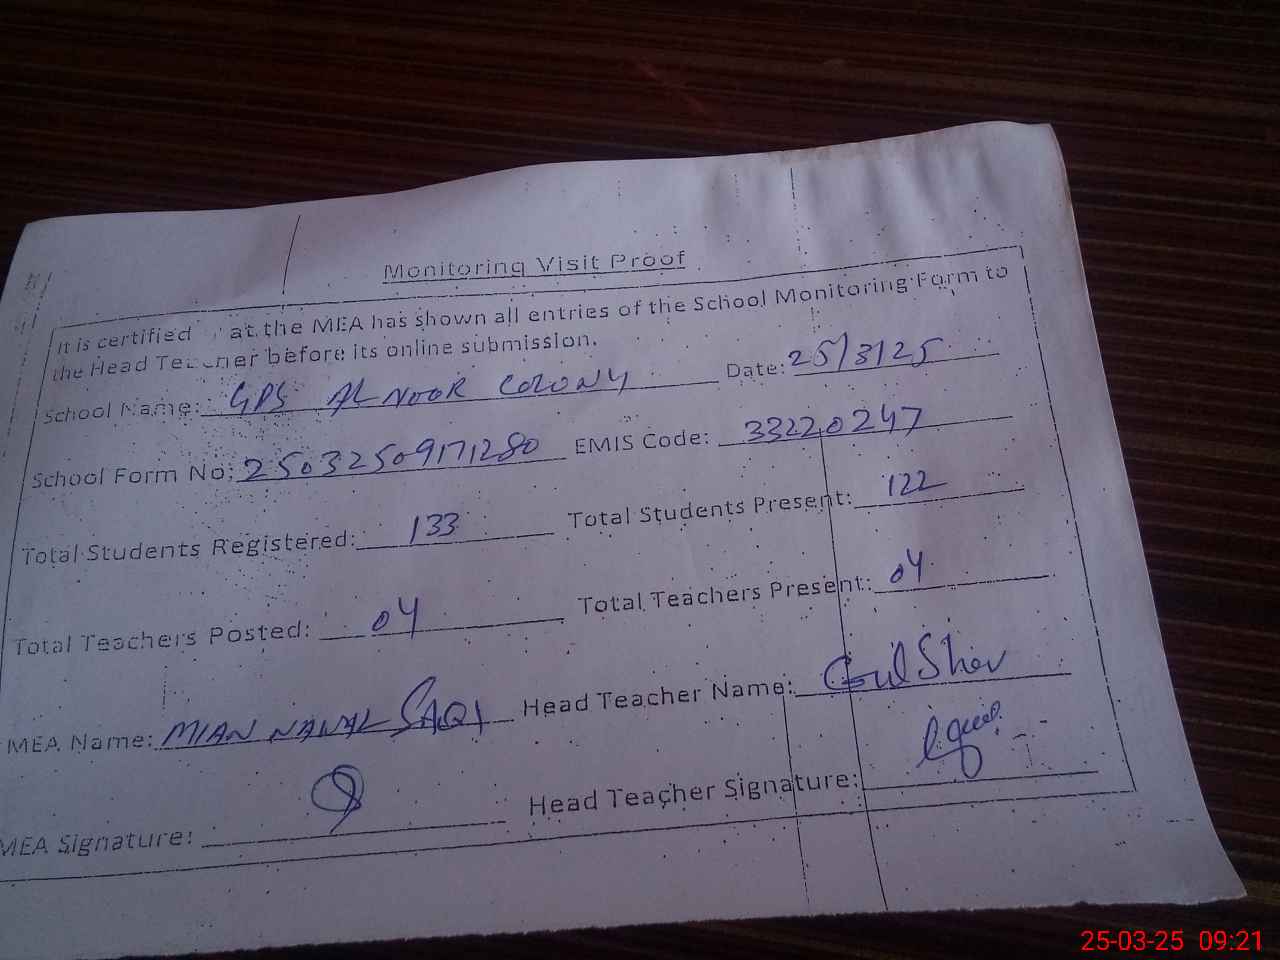 Monitoring Visit Proof
It is certified at the MEA has shown all entries of the School Monitoring Form to
the Head Teacher before its online submission.
School Name: GPS AL NOOR COLONY Date: 25/3/25
School Form No: 25032509171280 EMIS Code: 33220247
Total Students Registered: 133 Total Students Present: 122
Total Teachers Posted: 04 Total Teachers Present: 04
MEA Name: MIAN SAQI Head Teacher Name: Gul Sher
MEA Signature: Head Teacher Signature:
25-03-25 09:21